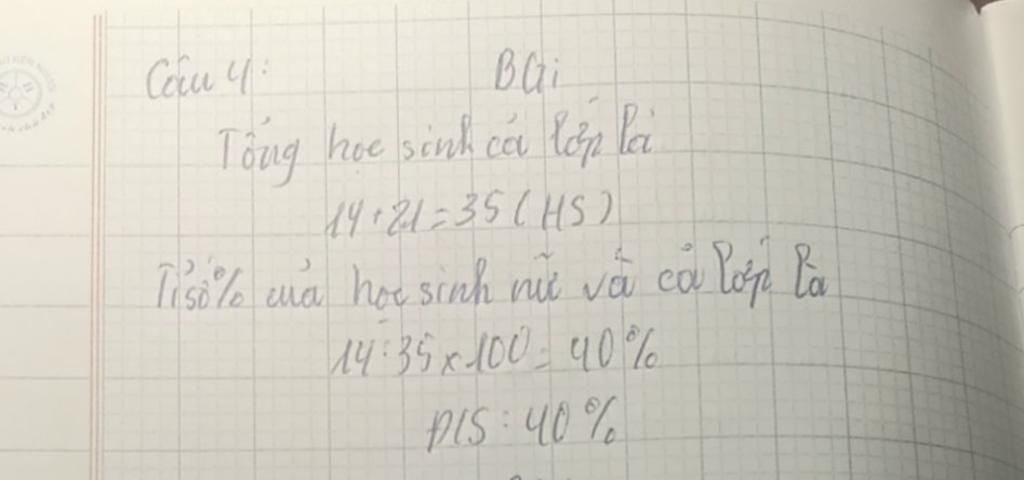 Câu 4: BGi
Tổng học sinh cả lớp là
14+21=35(HS)
Tỉ số % của học sinh nữ và cả lớp là
14:35x100=40%
Đ/S:40%